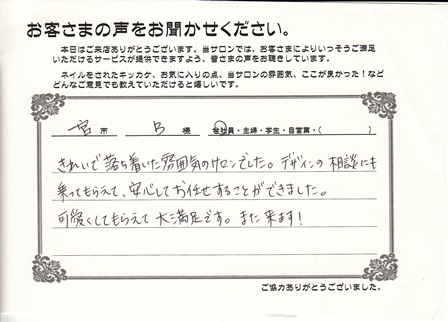 お客さまの声をお聞かせください。
本日はご来店ありがとうございます。当サロンでは、お客さまによりいっそうご満足
いただけるサービスが提供できますよう、皆さまの声をお聴きしています。
ネイルをされたキッカケ、お気に入りの点、当サロンの雰囲気、ここが良かった！など
どんなご意見でも教えていただけると嬉しいです。
宮 市 B 様 会社員・主婦・学生・自営業・( )
きれいで落ち着いた雰囲気のサロンでした。デザインの相談にも
乗ってもらえて、安心してお任せすることができました。
可愛くしてもらえて大満足です。また来ます！
ご協力ありがとうございました。